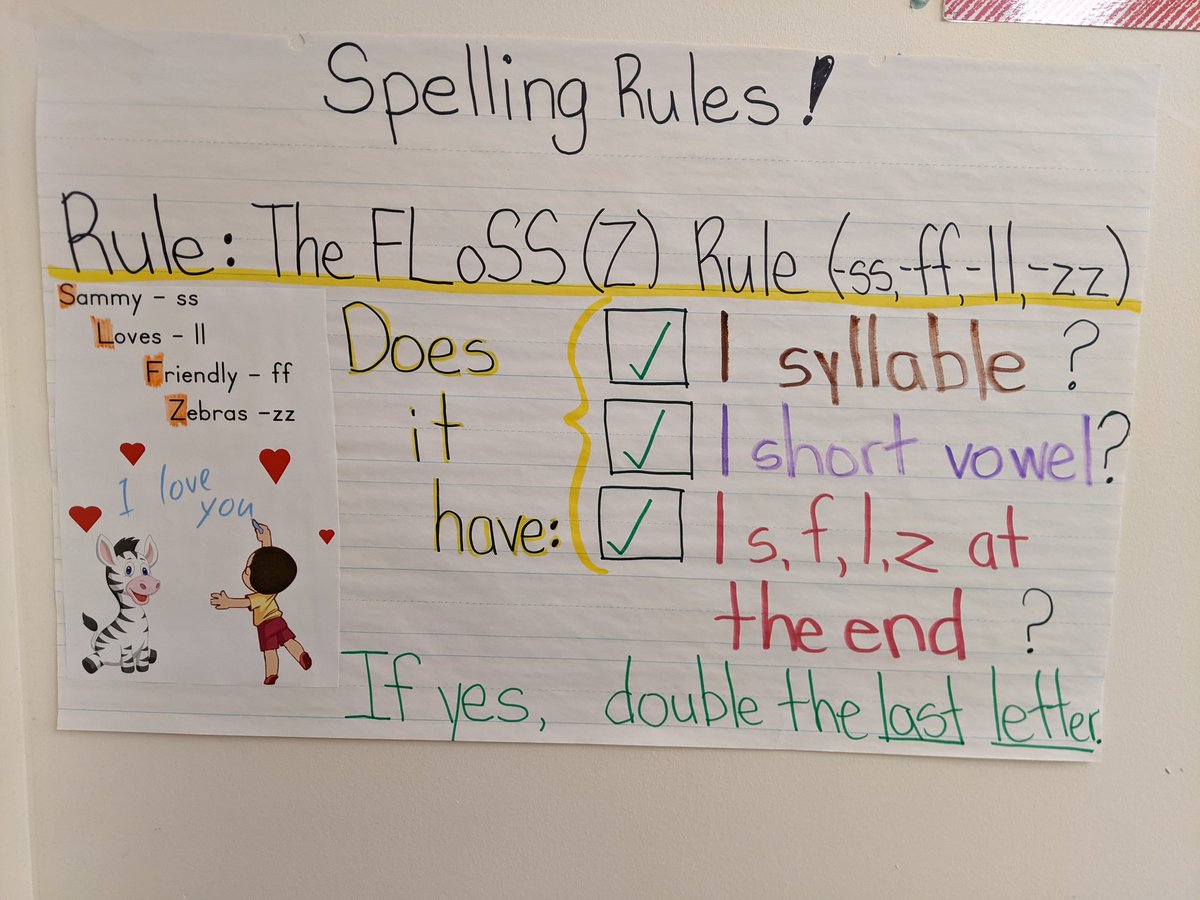 Spelling Rules!
Rule: The FLoSS (Z) Rule (-ss,-ff,-ll,-zz)
Sammy - ss
Loves - ll
Friendly - ff
Zebras -zz
I love
you
Does
it
have:
✓ 1 syllable ?
✓ 1 short vowel?
✓ 1 s, f, l, z at
the end ?
If yes, double the last letter.